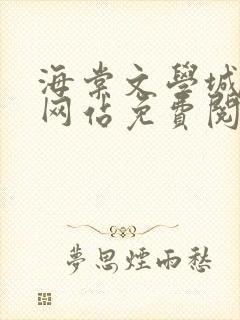 海棠文學城
网站免費閱
夢思煙雨愁